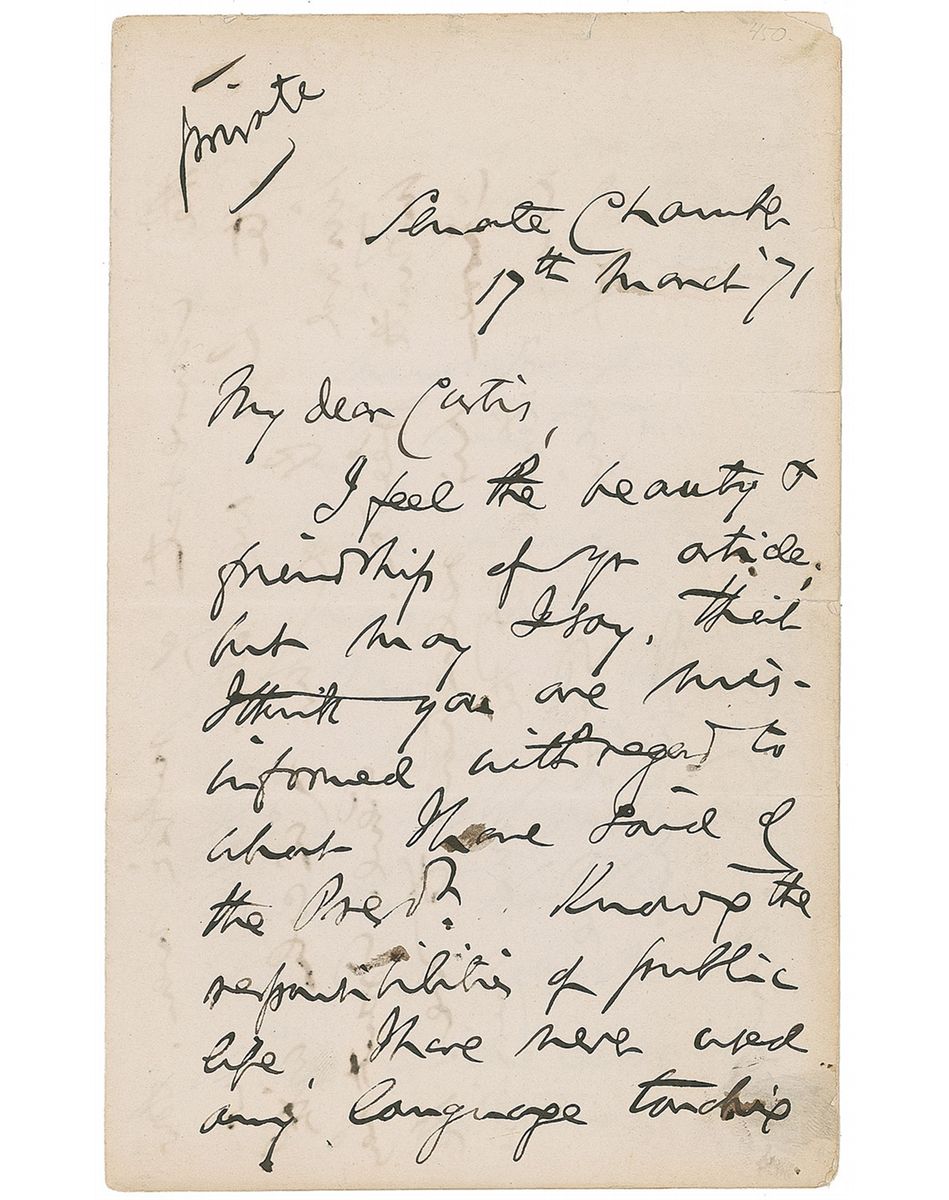 450.
Private
Senate Chamber
17th March '71
My dear Curtis,
I feel the beauty &
friendship of yr article,
but may I say, that
I think you are mis-
informed with regard to
what I have said of
the Presdt. Knowg the
responsibilities of public
life, I have never used
any language touchig